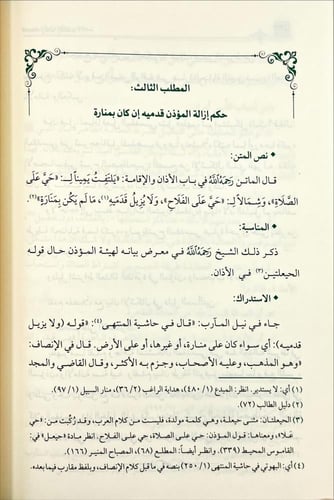 المطلب الثالث:
حكم إزالة المؤذن قدميه إن كان بمنارة
• نص المتن:
قال الماتن رَحِمَهُ ٱللَّهُ في باب الأذان والإقامة: «يَلتَفِتُ يَمِيناً لِـ: «حَيَّ عَلَى
الصَّلَاةِ»، وَشِمَالاً لِـ: «حَيَّ عَلَى الفَلَاحِ»، وَلَا يُزِيلُ قَدَمَيهِ(١)، مَا لَم يَكُن بِمَنَارَةٍ»(٢)
• المناسبة:
ذكر ذلك الشيخ رَحِمَهُ ٱللَّهُ في معرض بيانه لهيئة المؤذن حال قوله
الحيعلتين(٣) في الأذان.
• الاستدراك:
جاء في نيل المآرب: «قال في حاشية المنتهى(٤): «قوله (ولا يزيل
قدميه): أي سواء كان على منارة، أو غيرها، أو على الأرض. قال في الإنصاف:
«وهو المذهب، وعليه الأصحاب، وجزم به الأكثر، وقال القاضي والمجد
(١) أي: لا يستدير. انظر: المبدع (١/ ٤٨٠)، هداية الراغب (٢/ ٣٦)، منار السبيل (١/ ٩٧).
(٢) دليل الطالب (٧٢).
(٣) الحيعلتان: مثنى حيعلة، وهي كلمة مولدة، فليست من كلام العرب، وقد رُكّبت من:
عَلَى»، ومعناها: قول المؤذن: حي على الصلاة، حي على الفلاح. انظر مادة «حيعل» في
القاموس المحيط (٣٣٩). وانظر أيضاً: المطلع (٦٨)، المصباح المنير (١٦٦).
(٤) أي: البهوتي في حاشية المنتهى (١/ ٢٥٠) بنصه في ما قبل كلام الإنصاف، وبلفظ مقارب فيما بعده.